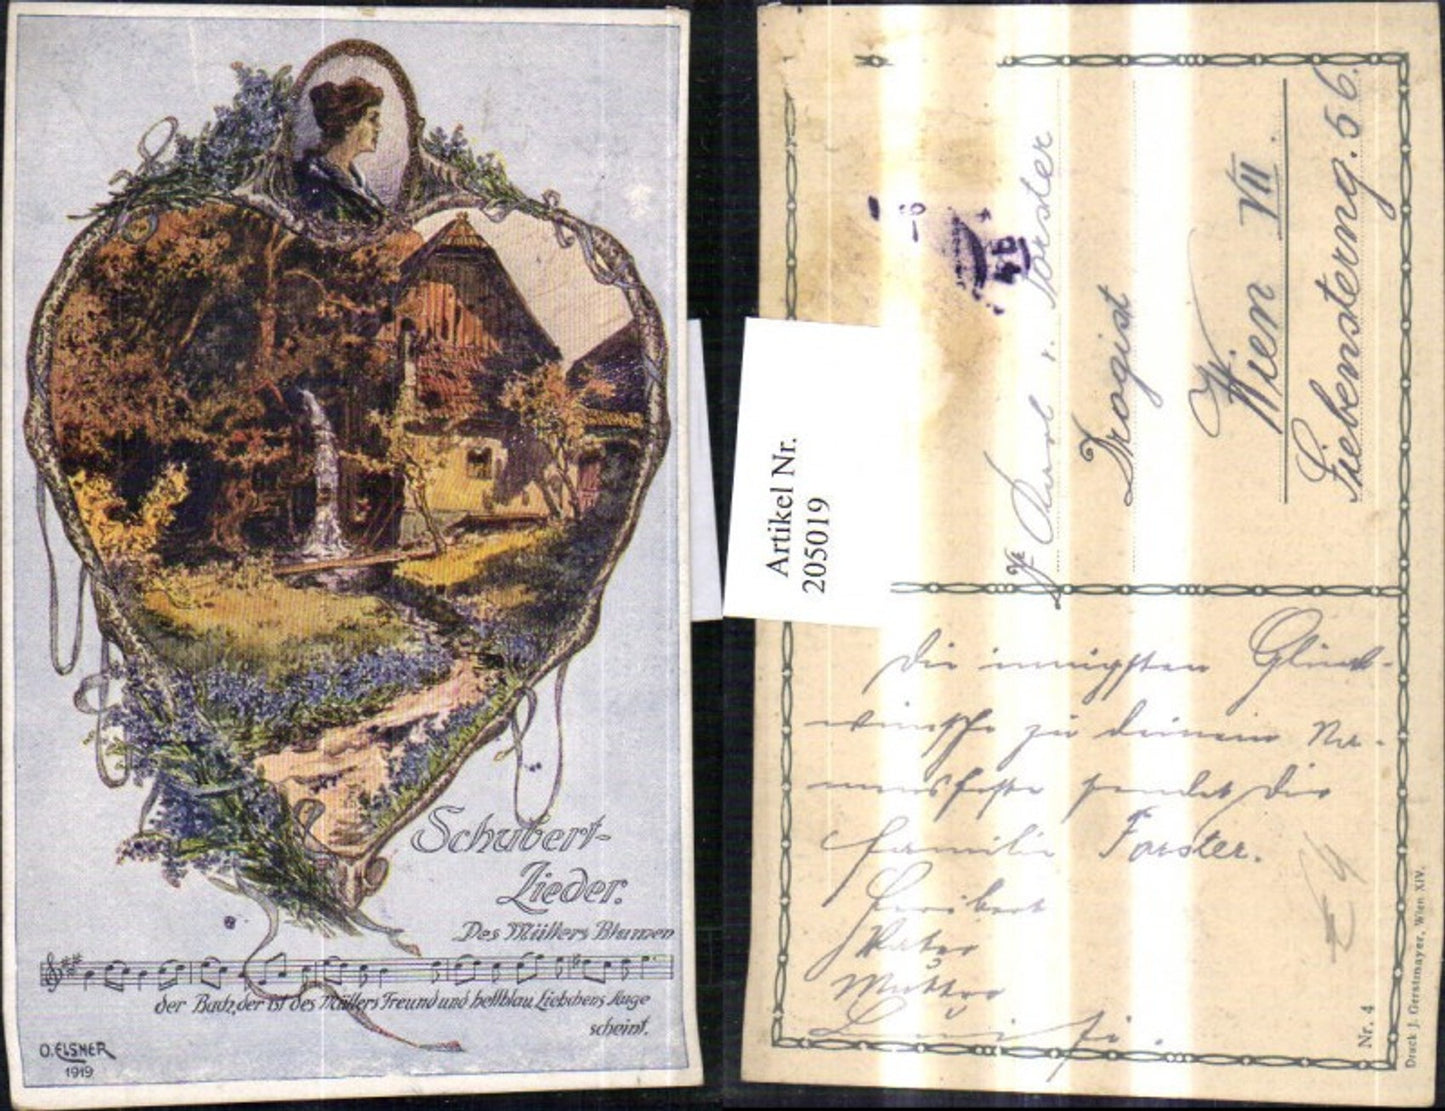 Schubert-
Lieder.
Des Müllers Blumen
der Bach, der ist des Müllers Freund und hellblau Liebchens Auge
scheint.
O. ELSNER
1919
Artikel Nr.
205019
Karl v. Forster
Drogist
Wien VII.
Siebensterng. 56.
Die innigsten Glück-
wünsche zu deinem Na-
mensfeste sendet die
Familie Forster.
Heribert
Vater
Mutter
€ 4
Nr. 4
Druck J. Gerstmayer, Wien XIV.